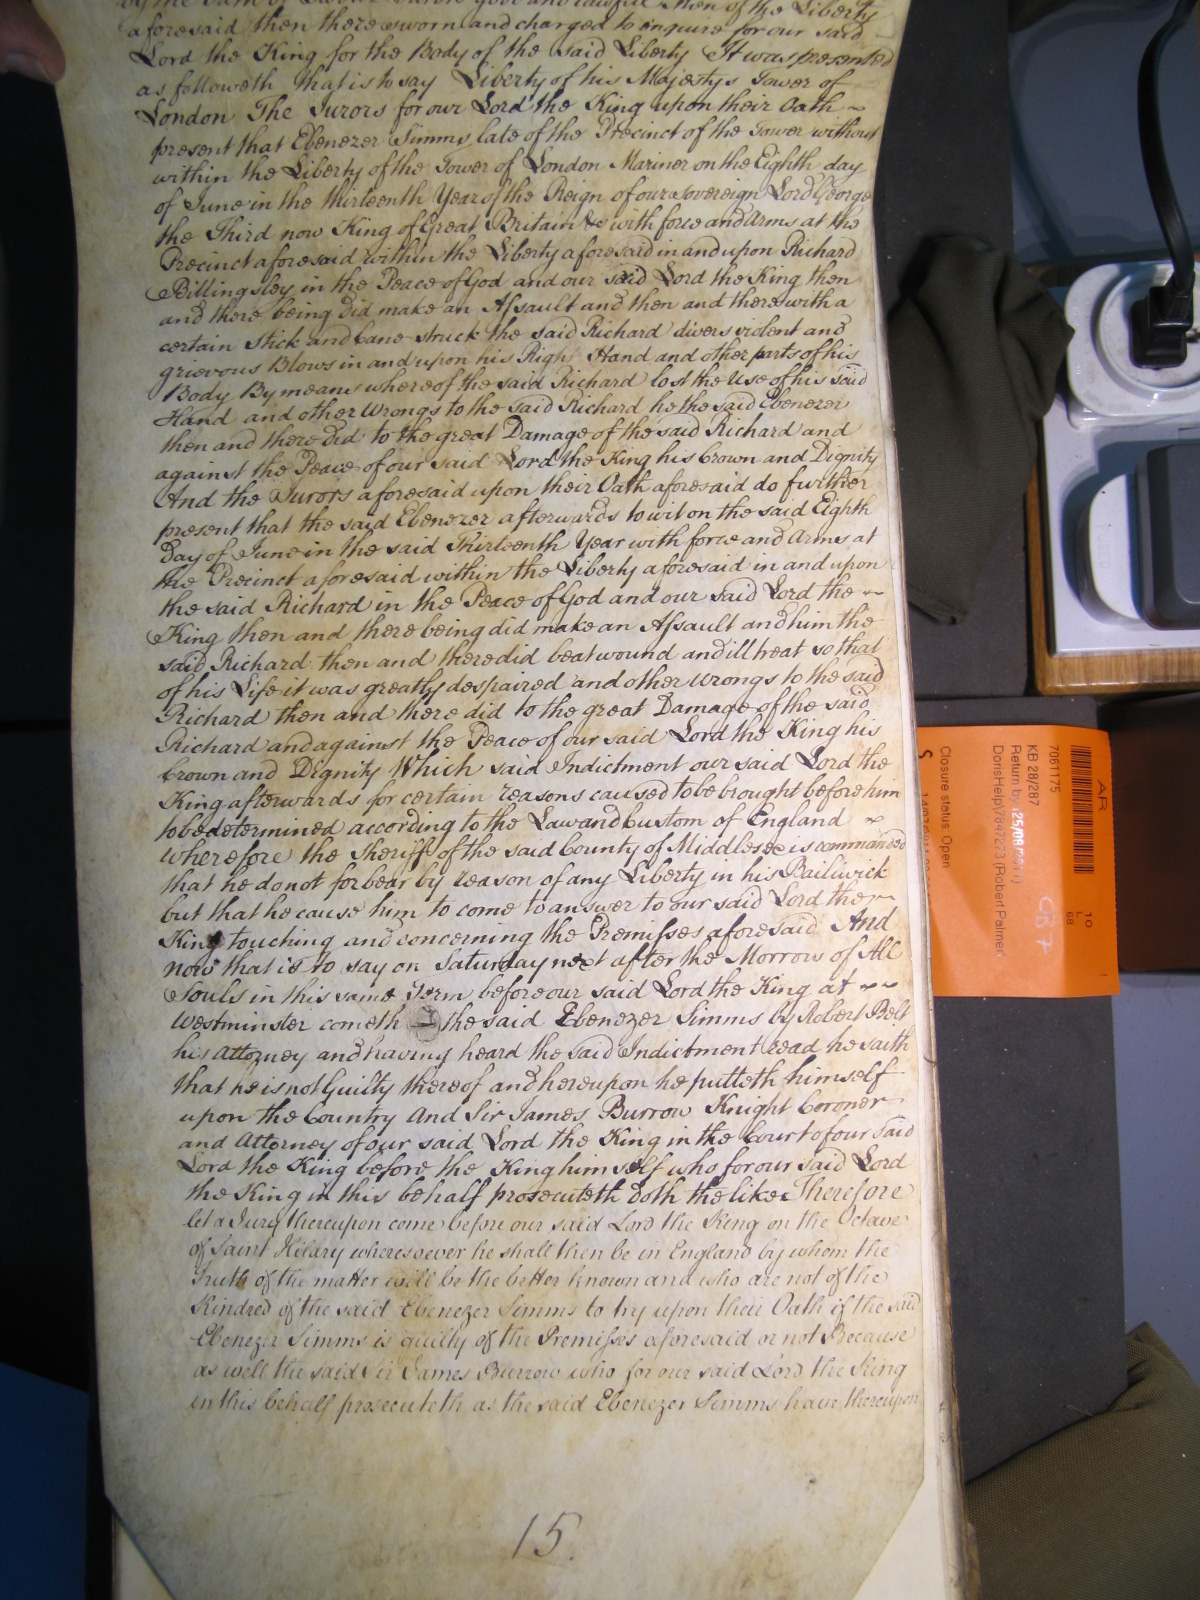 by the Oath of good and lawful Men of the Liberty
aforesaid then there sworn and charged to enquire for our said
Lord the King for the Body of the said Liberty It was presented
as followeth that is to say Liberty of his Majestys Tower of
London The Jurors for our Lord the King upon their Oath
present that Ebenezer Simms late of the Precinct of the Tower without
within the Liberty of the Tower of London Mariner on the Eighth day
of June in the thirteenth Year of the Reign of our sovereign Lord George
the Third now King of Great Britain &c with force and Arms at the
Precinct aforesaid within the Liberty aforesaid in and upon Richard
Billingsley in the Peace of God and our said Lord the King then
and there being did make an Assault and then and there with a
certain Stick and Cane struck the said Richard divers violent and
grievous Blows in and upon his Right Hand and other parts of his
Body By means whereof the said Richard lost the Use of his said
Hand and other Wrongs to the said Richard he the said Ebenezer
then and there did to the great Damage of the said Richard and
against the Peace of our said Lord the King his Crown and Dignity
And the Jurors aforesaid upon their Oath aforesaid do further
present that the said Ebenezer afterwards to wit on the said Eighth
Day of June in the said Thirteenth Year with force and Arms at
the Precinct aforesaid within the Liberty aforesaid in and upon
the said Richard in the Peace of God and our said Lord the
King then and there being did make an Assault and him the
said Richard then and there did beat wound and ill treat so that
of his Life it was greatly despaired and other wrongs to the said
Richard then and there did to the great Damage of the said
Richard and against the Peace of our said Lord the King his
Crown and Dignity Which said Indictment our said Lord the
King afterwards for certain reasons caused to be brought before him
to be determined according to the Law and Custom of England
wherefore the Sheriff of the said County of Middlesex is commanded
that he do not forbear by reason of any Liberty in his Bailiwick
but that he cause him to come to answer to our said Lord the
King touching and concerning the Premisses aforesaid And
now that is to say on Saturday next after the Morrow of All
Souls in this same Term before our said Lord the King at
Westminster cometh the said Ebenezer Simms by Robert Belt
his Attorney and having heard the said Indictment read he saith
that he is not Guilty thereof and hereupon he putteth himself
upon the Country And Sir James Burrow Knight Coroner
and Attorney of our said Lord the King in the Court of our said
Lord the King before the King himself who for our said Lord
the King in this behalf prosecuteth doth the like Therefore
let a Jury thereupon come before our said Lord the King on the Octave
of Saint Hilary wheresoever he shall then be in England by whom the
Truth of the matter will be the better known and who are not of the
Kindred of the said Ebenezer Simms to try upon their Oath if the said
Ebenezer Simms is guilty of the Premisses aforesaid or not Because
as well the said Sir James Burrow who for our said Lord the King
in this behalf prosecuteth as the said Ebenezer Simms have thereupon
15
AR
7061175
KB 28/287
Return by (25/08/2011)
DorisHelp7847273 (Robert Palmer)
Closure status: Open
S